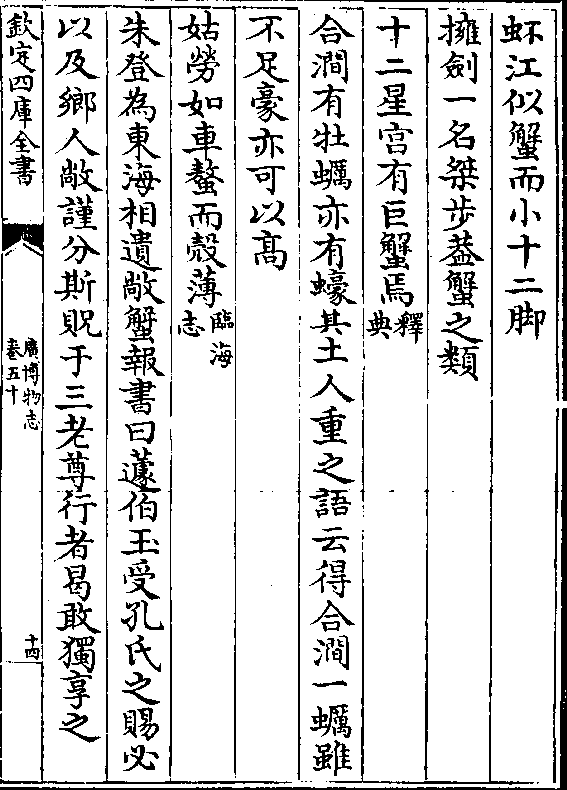 虷江似蟹而小十二脚
擁劍一名桀步葢蟹之類
十二星宫有巨蟹焉釋典
合澗有牡蠣亦有蠔其土人重之語云得合澗一蠣雖
不足豪亦可以髙
姑勞如車螯而殼薄臨海志
朱登為東海相遺敞蟹報書曰蘧伯玉受孔氏之賜必
以及鄉人敞謹分斯貺于三老尊行者曷敢獨享之
欽定四庫全書
廣博物志
卷五十
十四